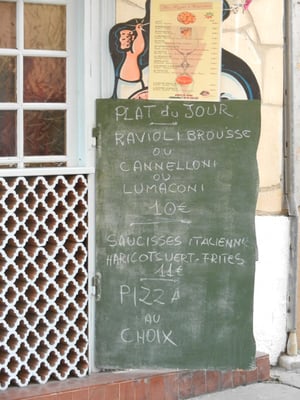 PLAT du JOUR
RAVIOLI BROUSSE
OU
CANNELLONI
OU
LUMACONI
10€
SAUCISSES ITALIENNE
HARICOTS VERT-FRITES
11€
PIZZA
AU
CHOIX